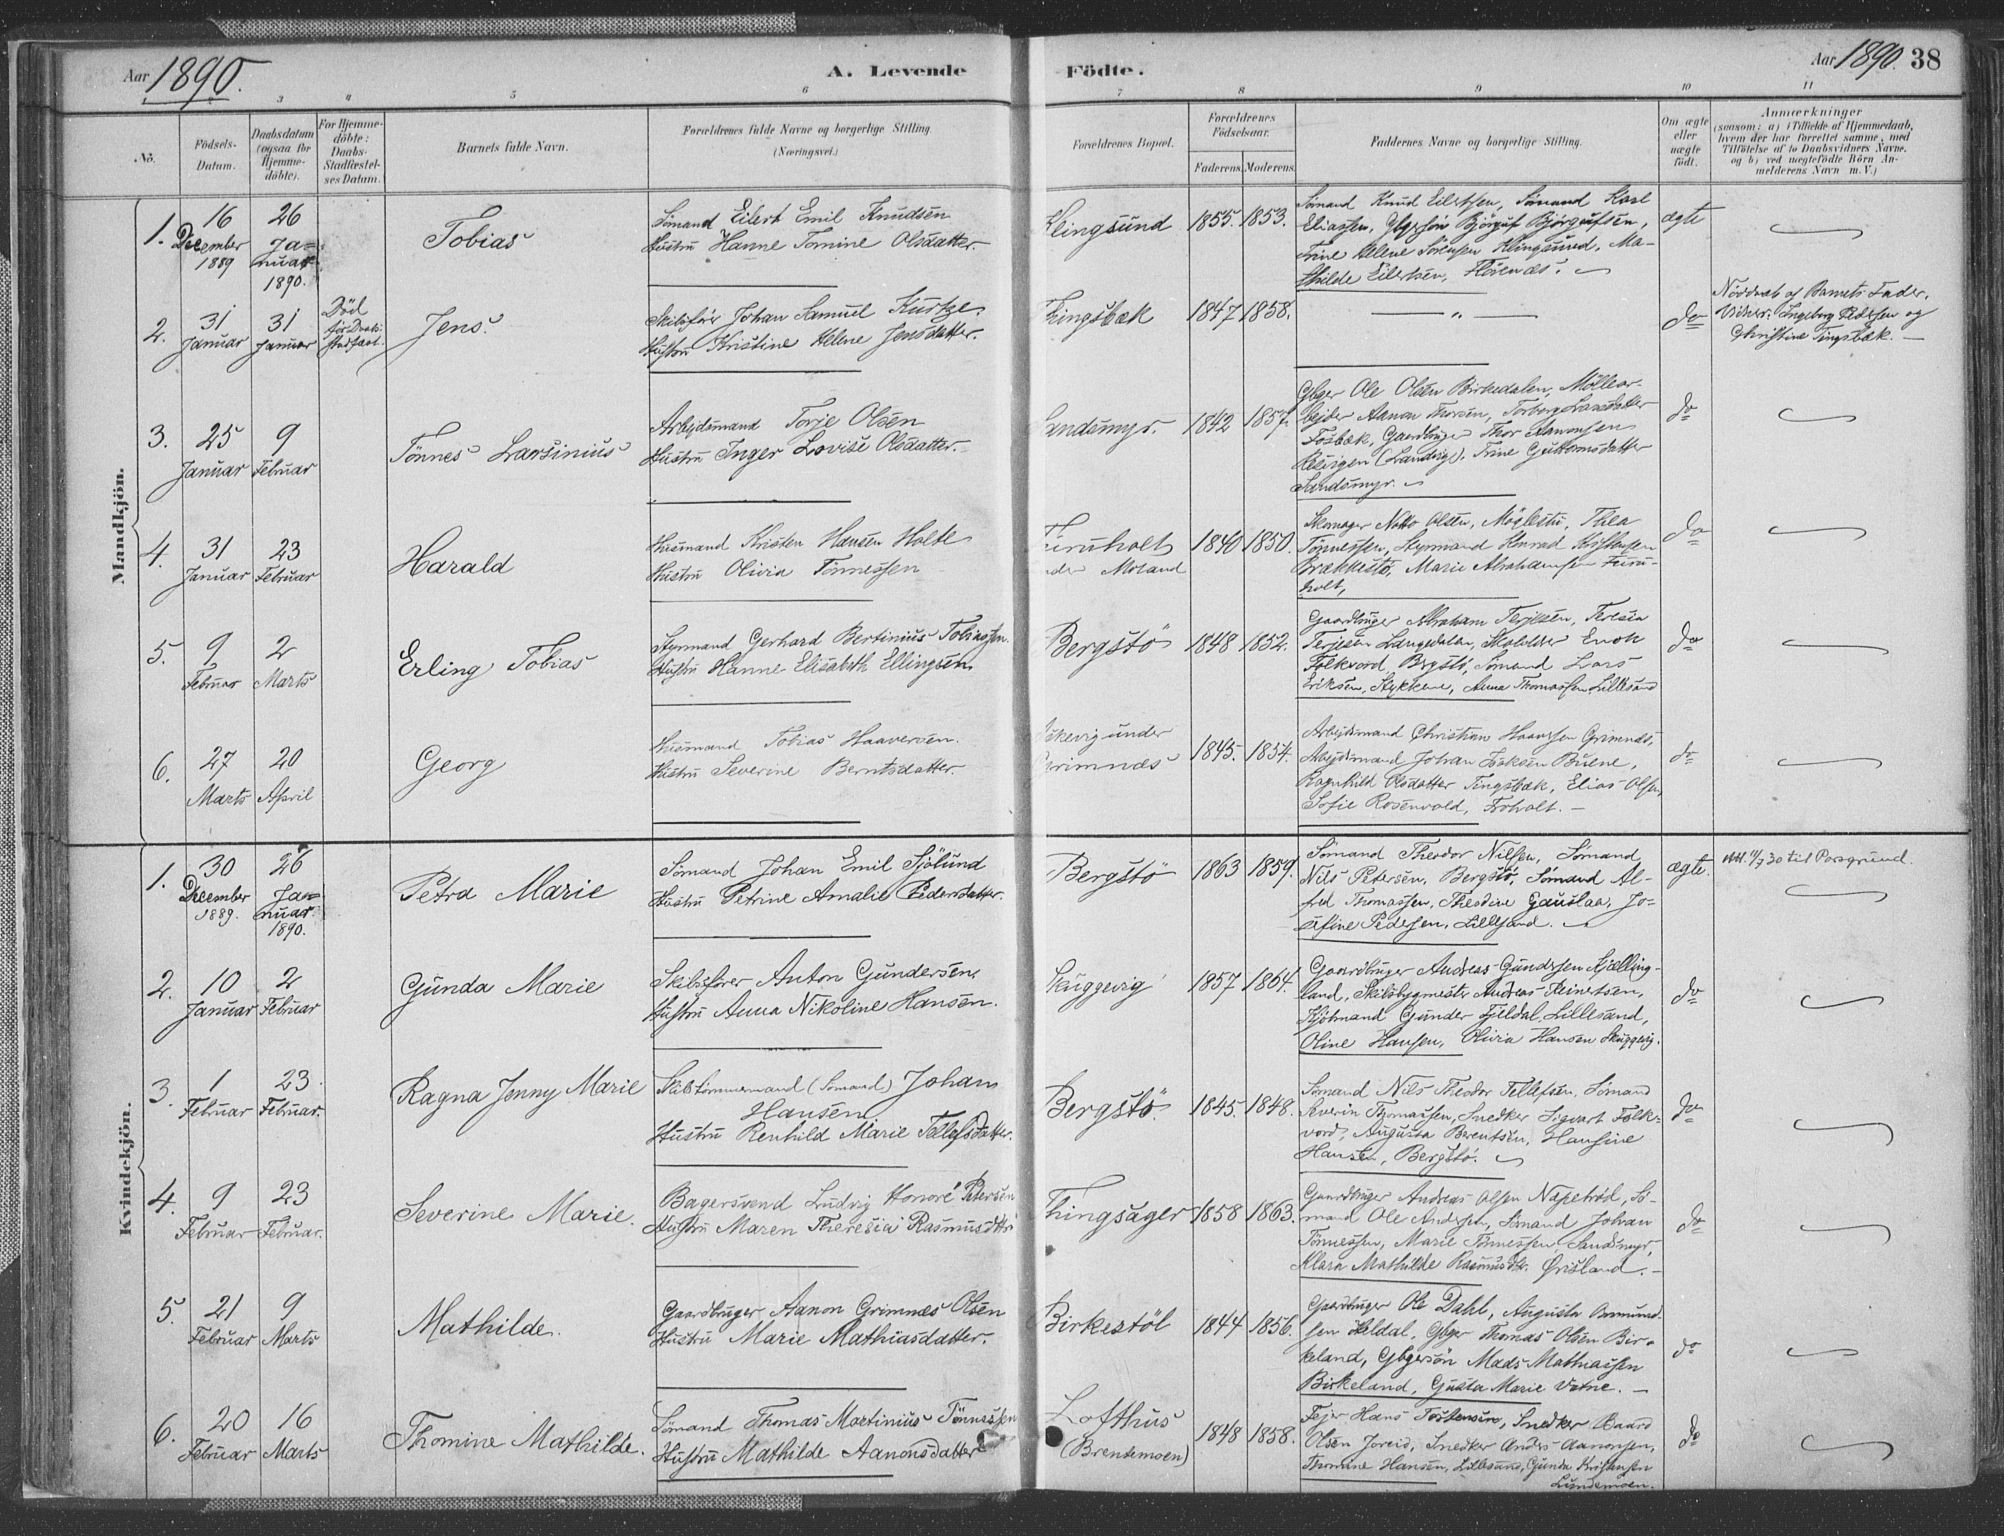 Aar 1890.
A. Levende Fødte.
Aar 1890. 38
3 4 5 6 7 8 9 10 11
No.
Födsels-Datum.
Daabsdatum (ogsaa for Hjemme-döbte).
For Hjemme-döbte: Daabs-Stadfæstel-ses Datum.
Barnets fulde Navn.
Forældrenes fulde Navne og borgerlige Stilling.
(Næringsvei.)
Forældrenes Bopæl.
Forældrenes Födselsaar.
Faderens. Moderens.
Faddernes Navne og borgerlige Stilling.
Om ægte eller uægte födt.
Anmærkninger
(saasom: a) i Tilfælde af Hjemmedaab,
hvem der har forrettet samme, med
Tilföielse af to Daabsvidners Navne.
og b) ved uægtefödte Börn An-
melderens Navn m. V.)
Mandkjön.
1. 16 December 1889
26 Januar 1890.
Tobias
Sömand Eilert Emil Knudsen
Hustru Hanne Tomine Olsdatter
Klingsund 1855. 1853.
Sömand Knud Eilertsen, Sömand Karl
Eliassen, Björguf Björgufsen,
Trine Helene Sörensen Klingsund, Ma-
thilde Eilertsen,
ægte
2. 31 Januar
31 Januar
Död för Daabs
Jens.
Skibsförer Johan Samuel Kurtze
Hustru Kristine Helene Jensdatter.
Tingsbæk 1847 1858.
— " —
do
Nöddöbt af Barnets Fader.
Vidner: Ingeborg Pedersen og
Christine Tingsbæk.
3. 25 Januar
9 Februar
Tönnes Larsinius
Arbeidsmand Terje Olsen
Hustru Inger Lovise Olsdatter.
Sandsmyr. 1842 1857.
Gbger Ole Olsen Birkedalen, Möllear-
beider Aanon Thorsen, Torborg Larsdatter
Fosbæk, Gaardbruger Thor Aanonsen
(Landvig), Trine Guttormsdatter
Sandsmyr.
do
4. 31 Januar
23 Februar
Harald
Husmand Kristen Hansen Holte
Hustru Olivia Tönnessen
Furuholt
under Moland
1840 1850.
Skomager Olsen, Möglestu, Thea
Tönnessen, Styrmand Konrad Kristensen
Brækkestö, Marie Abrahamsen Furu-
holt,
do
5. 9 Februar
2 Marts
Erling Tobias
Styrmand Gerhard Bertinius Tobiassen.
Hustru Hanne Elisabeth Ellingsen
Bergstö 1848 1852.
Gaardbruger Abraham Terjesen, Teresia
Terjesen Langedalen, Enok
Folkvord, Bergstö, Sömand Lars
Eriksen, Stykkene, Anna Thomassen Lillesand
do
6. 27 Marts
20 April
Georg
Husmand Tobias Haaversen.
Hustru Severine Berntsdatter.
under
Grimnæs
1845. 1854.
Arbeidsmand Christian Hansen Grimnæs,
Arbeidsmand Johan Isaksen Buene,
Ragnhild Olsdatter Tingsbæk, Elias Olsen,
Sofie Rosenvold,
do
Kvindekjön.
1. 30 December 1889.
26 Januar 1890.
Petra Marie
Sömand Johan Emil Sjölund
Hustru Petrine Amalie Pedersdatter.
Bergstö 1863 1859.
Sömand Theodor Nilsen, Sömand
Nils Petersen, Bergstö, Sömand Al-
fred Thomassen, Theodine Gauslaa, Jo-
sefine Pedersen, Lillesand.
ægte.
Att. 11/7 30 til Porsgrund.
2. 10 Januar
2 Februar
Gunda Marie
Skibsförer Anton Gundersen.
Hustru Anna Nikoline Hansen.
Skuggevig 1857 1864.
Gaardbruger Andreas Gundersen Kjælling-
land, Skibsbygmester Andreas Reinertsen,
Kjöbmand Gunder Fjeldal, Lillesand,
Oline Hansen, Olivia Hansen Skuggevig.
do
3. 1 Februar
23. Februar.
Ragna Jenny Marie
Skibstömmermand (Sömand) Johan
Hansen
Hustru Renhild Marie Tellefsdatter.
Bergstö 1845 1848.
Sömand Nils Theodor Tellefsen, Sömand
Severin Thomassen, Snedker Sigvart Folk-
vord, Augusta Berentsen, Hansine
Hansen, Bergstö.
do
4. 9 Februar
23 Februar.
Severine Marie.
Bagersvend Ludvig Honoré Petersen
Hustru Maren Theresia Rasmusdttr
Thingsager 1858 1863.
Gaardbruger Andreas Olsen Næpetröd, Sö-
mand Ole Andersen, Sömand Johan
Tönnessen, Marie Tönnessen Sandsmyr,
Klara Mathilde Rasmusdtr. Örisland.
do
5. 21 Februar
9 Marts
Mathilde.
Gaardbruger Aanon Grimnæs Olsen
Hustru Marie Mathiasdatter.
Birkestöl 1844 1856.
Gaardbruger Ole Dahl, Augusta Osmund-
sen Heldal, Gbger Thomas Olsen Bir-
keland, Gbgersön Mads Mathiassen
Birkeland, Gusta Marie Vatne.
do
6. 20 Februar
16 Marts
Thomine Mathilde.
Sömand Thomas Martinius Tönnessen
Hustru Mathilde Aanonsdatter
Lofthus
(Brentemoen)
1848 1858.
Hans Torstensen, Snedker Baard
Olsen Joreid, Snedker Anders Aanonsen,
Thomine Hansen, Lillesand, Gunda Kristensen
Lundemoen.
do